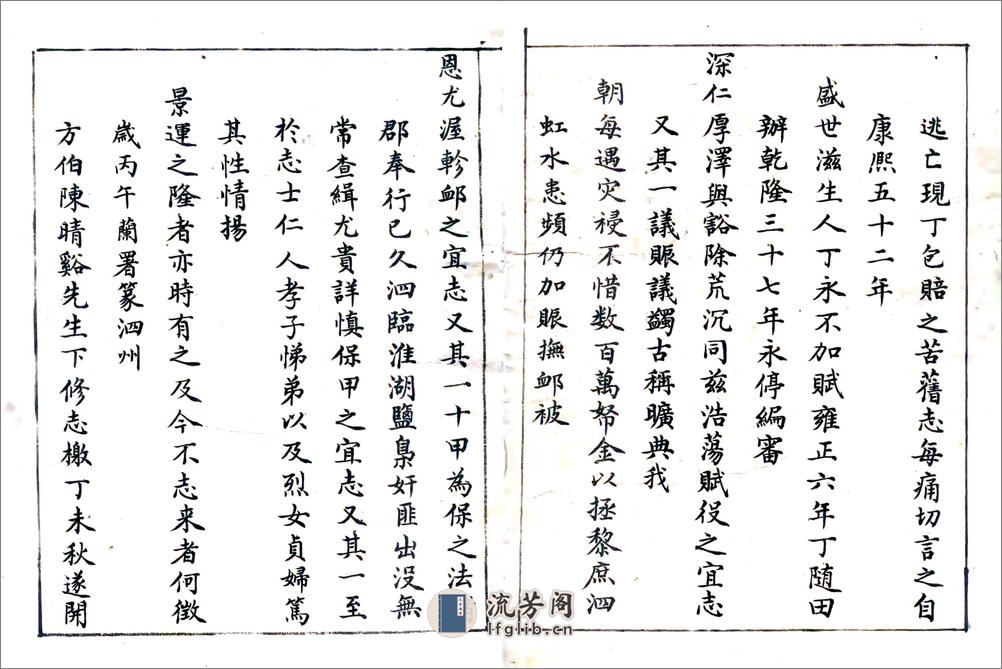 逃亡現丁包賠之苦舊志每痛切言之自
康熙五十二年
盛世滋生人丁永不加賦雍正六年丁随田
辦乾隆三十七年永停編審
深仁厚澤與豁除荒沉同兹浩蕩賦役之宜志
又其一議賑議蠲古稱曠典我
朝每遇灾祲不惜数百萬帑金以拯黎庶泗
虹水患頻仍加賑撫衂被
恩尤渥軫衂之宜志又其一十甲為保之法
郡奉行已久泗臨淮湖鹽梟奸匪出没無
常查緝尤貴詳慎保甲之宜志又其一至
於志士仁人孝子悌弟以及烈女貞婦篤
其性情揚
景運之隆者亦時有之及今不志来者何徴
嵗丙午蘭署篆泗州
方伯陳晴谿先生下修志檄丁未秋遂開
流芳阁
lfglib.cn